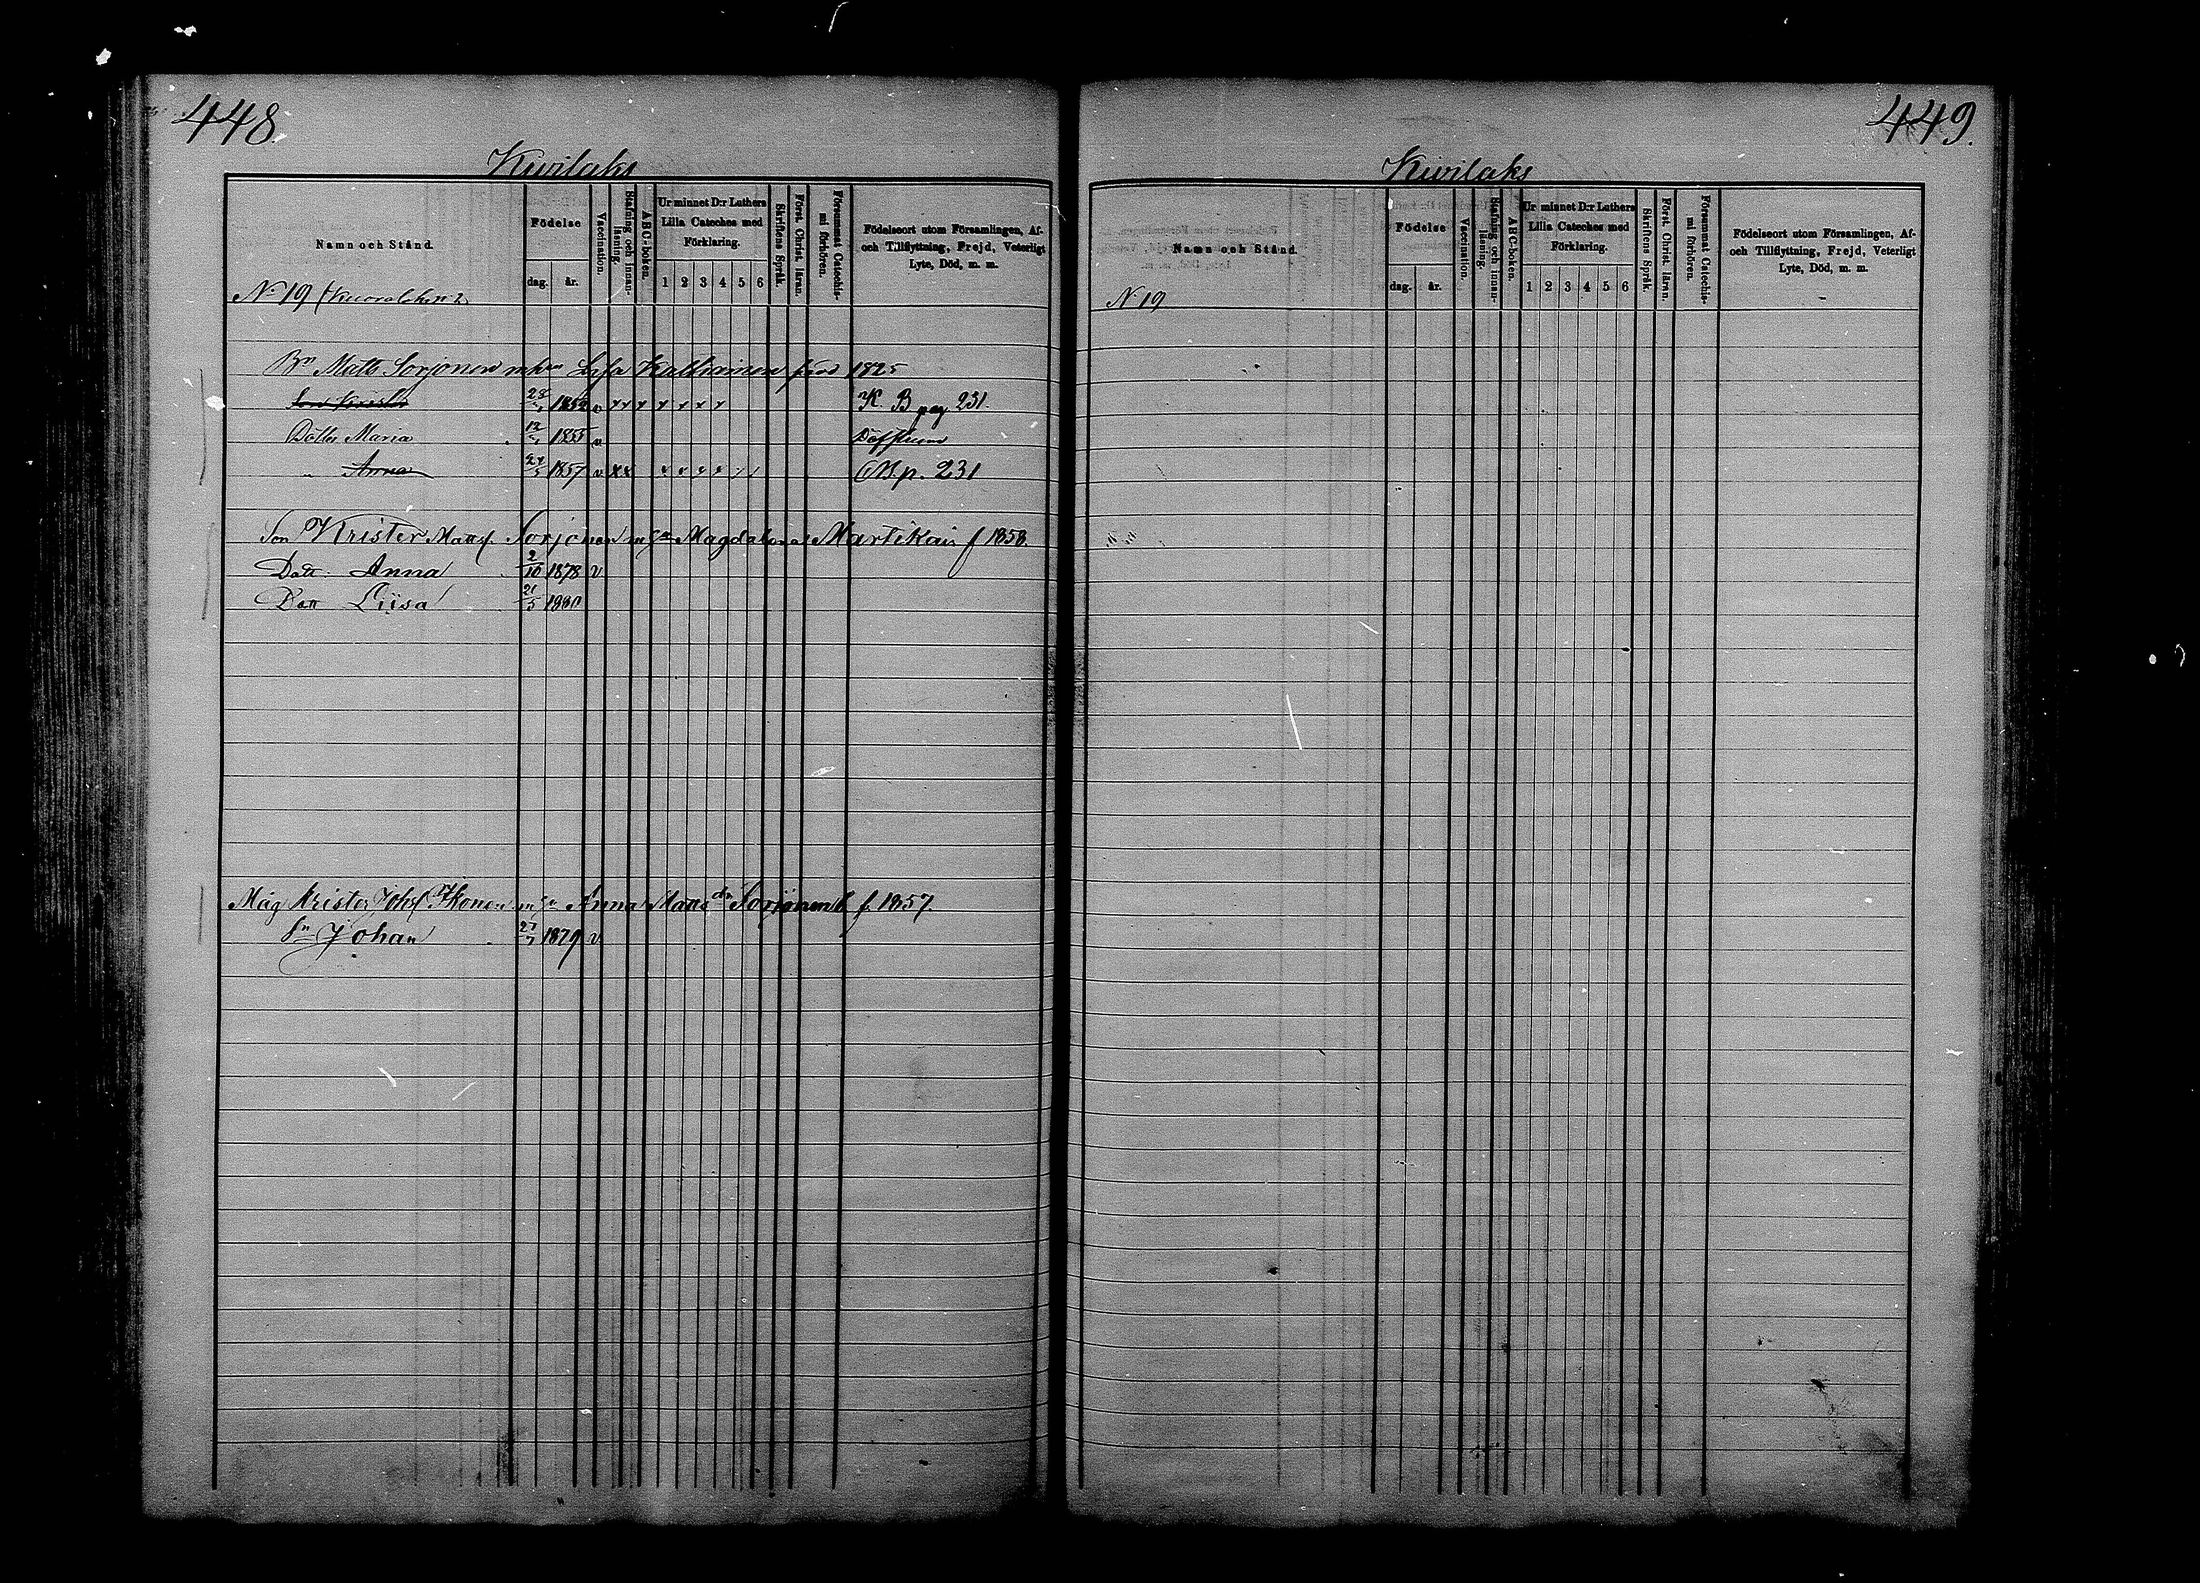 448.
Kivilaks
Namn och Stånd.
Födelse
dag.
år.
Vaccination.
Stafning och innan-läsning.
ABC-boken.
Ur minnet D:r Luthers Lilla Cateches med Förklaring.
1 2 3 4 5 6
Skriftens Språk.
Först. Christ. läran.
Försummat Catechis-mi förhören.
Födelseort utom Församlingen, Af- och Tillflyttning, Frejd, Veterligt Lyte, Död, m. m.
N 19
Bn Matts Sorjonen Kallinainen 1825
Son Krister 1852 v x x x x x x x K. B pag 231.
Dotter Maria 12 1855 v Döfstum
" Anna 24/5 1857 v x x x x x x / / p. 231
Son Krister Matts. Sorjonen m Magdalena Martikain f 1858.
Dott. Anna 2/10 1878 v
Dott Liisa 21/5 1880
Måg Krister Johs. Ikonen Anna Matts dr Sorjonen f. 1857.
Sn Johan 27/7 1879 v
449.
Kivilaks
Namn och Stånd.
Födelse
dag.
år.
Vaccination.
Stafning och innan-läsning.
ABC-boken.
Ur minnet D:r Luthers Lilla Cateches med Förklaring.
1 2 3 4 5 6
Skriftens Språk.
Först. Christ. läran.
Försummat Catechis-mi förhören.
Födelseort utom Församlingen, Af- och Tillflyttning, Frejd, Veterligt Lyte, Död, m. m.
N 19